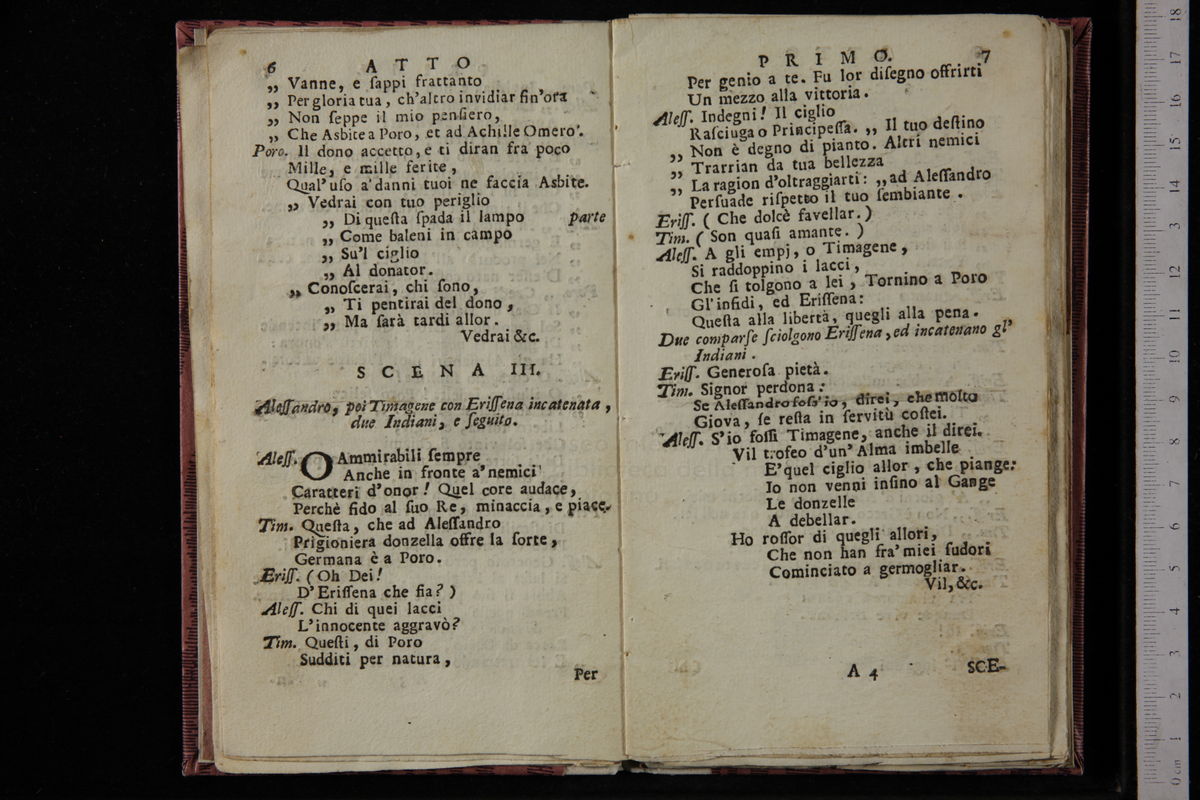 6 ATTO
„ Vanne, e ſappi frattanto
„ Per gloria tua, ch'altro invidiar ſin'ora
„ Non ſeppe il mio penſiero,
„ Che Asbite a Poro, et ad Achille Omero.
Poro. Il dono accetto, e ti diran fra poco
Mille, e mille ferite,
Qual'uſo a' danni tuoi ne faccia Asbite.
„ Vedrai con tuo periglio
„ Di queſta ſpada il lampo parte
„ Come baleni in campo
„ Su'l ciglio
„ Al donator.
„ Conoſcerai, chi ſono,
„ Ti pentirai del dono,
„ Ma ſarà tardi allor.
Vedrai &c.
SCENA III.
Aleſſandro, poi Timagene con Eriſſena incatenata,
due Indiani, e ſeguito.
Aleſſ. O Ammirabili ſempre
Anche in fronte a' nemici
Caratteri d'onor! Quel core audace,
Perchè fido al ſuo Re, minaccia, e piace.
Tim. Queſta, che ad Aleſſandro
Prigioniera donzella offre la ſorte,
Germana è a Poro.
Eriſſ. (Oh Dei!
D'Eriſſena che fia?)
Aleſſ. Chi di quei lacci
L'innocente aggravò?
Tim. Queſti, di Poro
Sudditi per natura,
Per
PRIMO. 7
Per genio a te. Fu lor diſegno offrirti
Un mezzo alla vittoria.
Aleſſ. Indegni! Il ciglio
Raſciuga o Principeſſa. „ Il tuo deſtino
„ Non è degno di pianto. Altri nemici
„ Trarrian da tua bellezza
„ La ragion d'oltraggiarti: „ ad Aleſſandro
Perſuade riſpetto il tuo ſembiante.
Eriſſ. (Che dolcè favellar.)
Tim. (Son quaſi amante.)
Aleſſ. A gli empj, o Timagene,
Si raddoppino i lacci,
Che ſi tolgono a lei, Tornino a Poro
Gl'infidi, ed Eriſſena:
Queſta alla libertà, quegli alla pena. „
Due comparſe ſciolgono Eriſſena, ed incatenano gl'
Indiani.
Eriſſ. Generoſa pietà.
Tim. Signor perdona:
Se Aleſſandro foſs'io, direi, che molto
Giova, ſe reſta in ſervitù coſtei.
Aleſſ. S'io foſſi Timagene, anche il direi.
Vil trofeo d'un'Alma imbelle
E'quel ciglio allor, che piange:
Io non venni inſino al Gange
Le donzelle
A debellar.
Ho roſſor di quegli allori,
Che non han fra' miei ſudori
Cominciato a germogliar.
Vil, &c.
A 4 SCE-